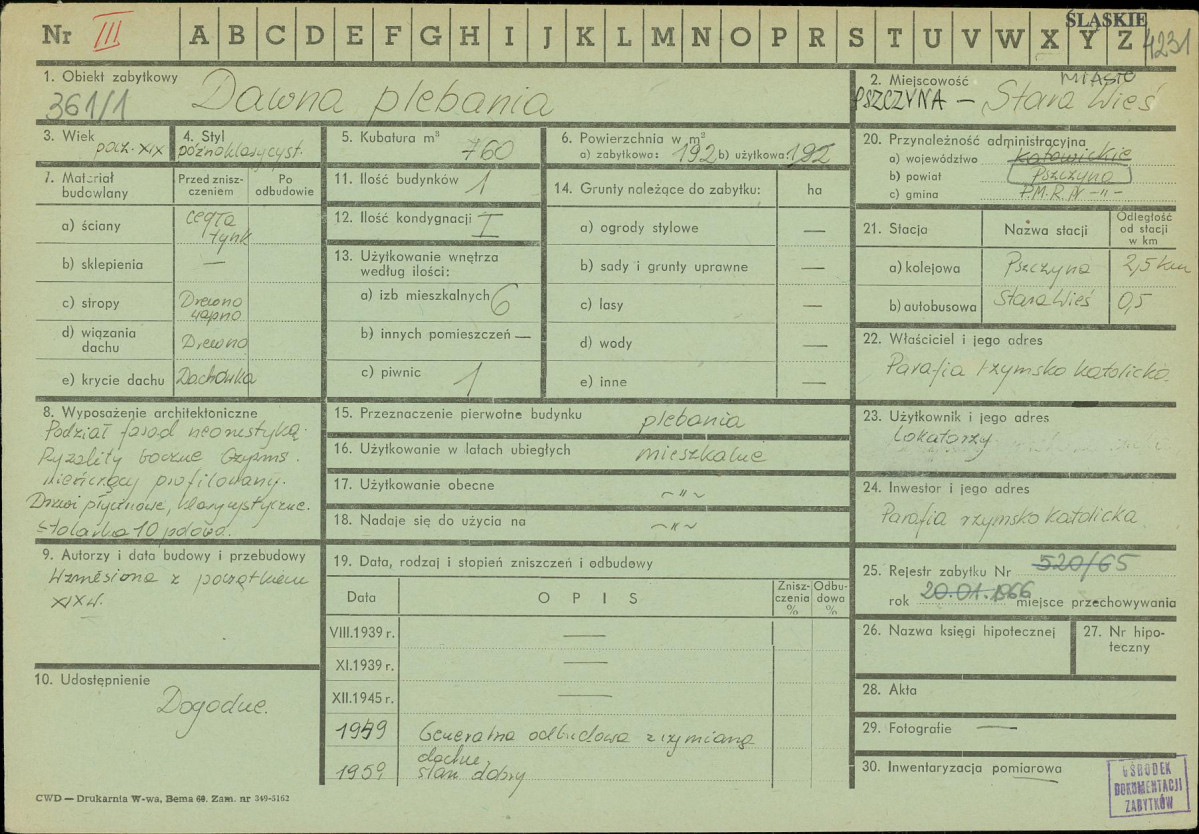 Nr III A B C D E F G H I J K L M N O P R S T U V W X Y Z
ŚLĄSKIE
4231
1. Obiekt zabytkowy
361/1 Dawna plebania
2. Miejscowość MIASTO
PSZCZYNA – Stara Wieś
3. Wiek
pocz. XIX
4. Styl
późnoklasycyst.
5. Kubatura m³
760
6. Powierzchnia w m²
a) zabytkowa: 192 b) użytkowa: 192
7. Materiał budowlany
Przed zniszczeniem
Po odbudowie
a) ściany cegła tynk
b) sklepienia —
c) stropy Drewno
d) wiązania dachu Drewno
e) krycie dachu Dachówka
11. Ilość budynków 1
12. Ilość kondygnacji I
13. Użytkowanie wnętrza według ilości:
a) izb mieszkalnych 6
b) innych pomieszczeń —
c) piwnic 1
14. Grunty należące do zabytku: ha
a) ogrody stylowe —
b) sady i grunty uprawne —
c) lasy —
d) wody —
e) inne —
20. Przynależność administracyjna
a) województwo katowickie
b) powiat Pszczyna
c) gmina P.M.R.N -"-
21. Stacja
Nazwa stacji
Odległość od stacji w km
a) kolejowa Pszczyna 2,5 km
b) autobusowa Stara Wieś 0,5
22. Właściciel i jego adres
Parafia rzymsko katolicka.
8. Wyposażenie architektoniczne
Podział fasad
Ryzality boczne
profilowany.
Drzwi płycinowe, klasycystyczne.
Stolarka 10 polowa.
15. Przeznaczenie pierwotne budynku plebania
16. Użytkowanie w latach ubiegłych mieszkalne
17. Użytkowanie obecne ~"~
18. Nadaje się do użycia na ~"~
23. Użytkownik i jego adres
Lokatorzy
24. Inwestor i jego adres
Parafia rzymsko katolicka
9. Autorzy i data budowy i przebudowy
Wzniesiona z początkiem
XIX w.
19. Data, rodzaj i stopień zniszczeń i odbudowy
Data
OPIS
Zniszczenia %
Odbudowa %
VIII.1939 r. —
XI.1939 r. —
XII.1945 r. —
1949 Generalna odbudowa z wymianą
dachu,
1959 stan dobry
25. Rejestr zabytku Nr 520/65
rok 20.01.1966 miejsce przechowywania
26. Nazwa księgi hipotecznej
27. Nr hipoteczny
10. Udostępnienie
Dogodne.
28. Akta
29. Fotografie —
30. Inwentaryzacja pomiarowa
OŚRODEK
DOKUMENTACJI
ZABYTKÓW
CWD — Drukarnia W-wa, Bema 60. Zam. nr 349-5162